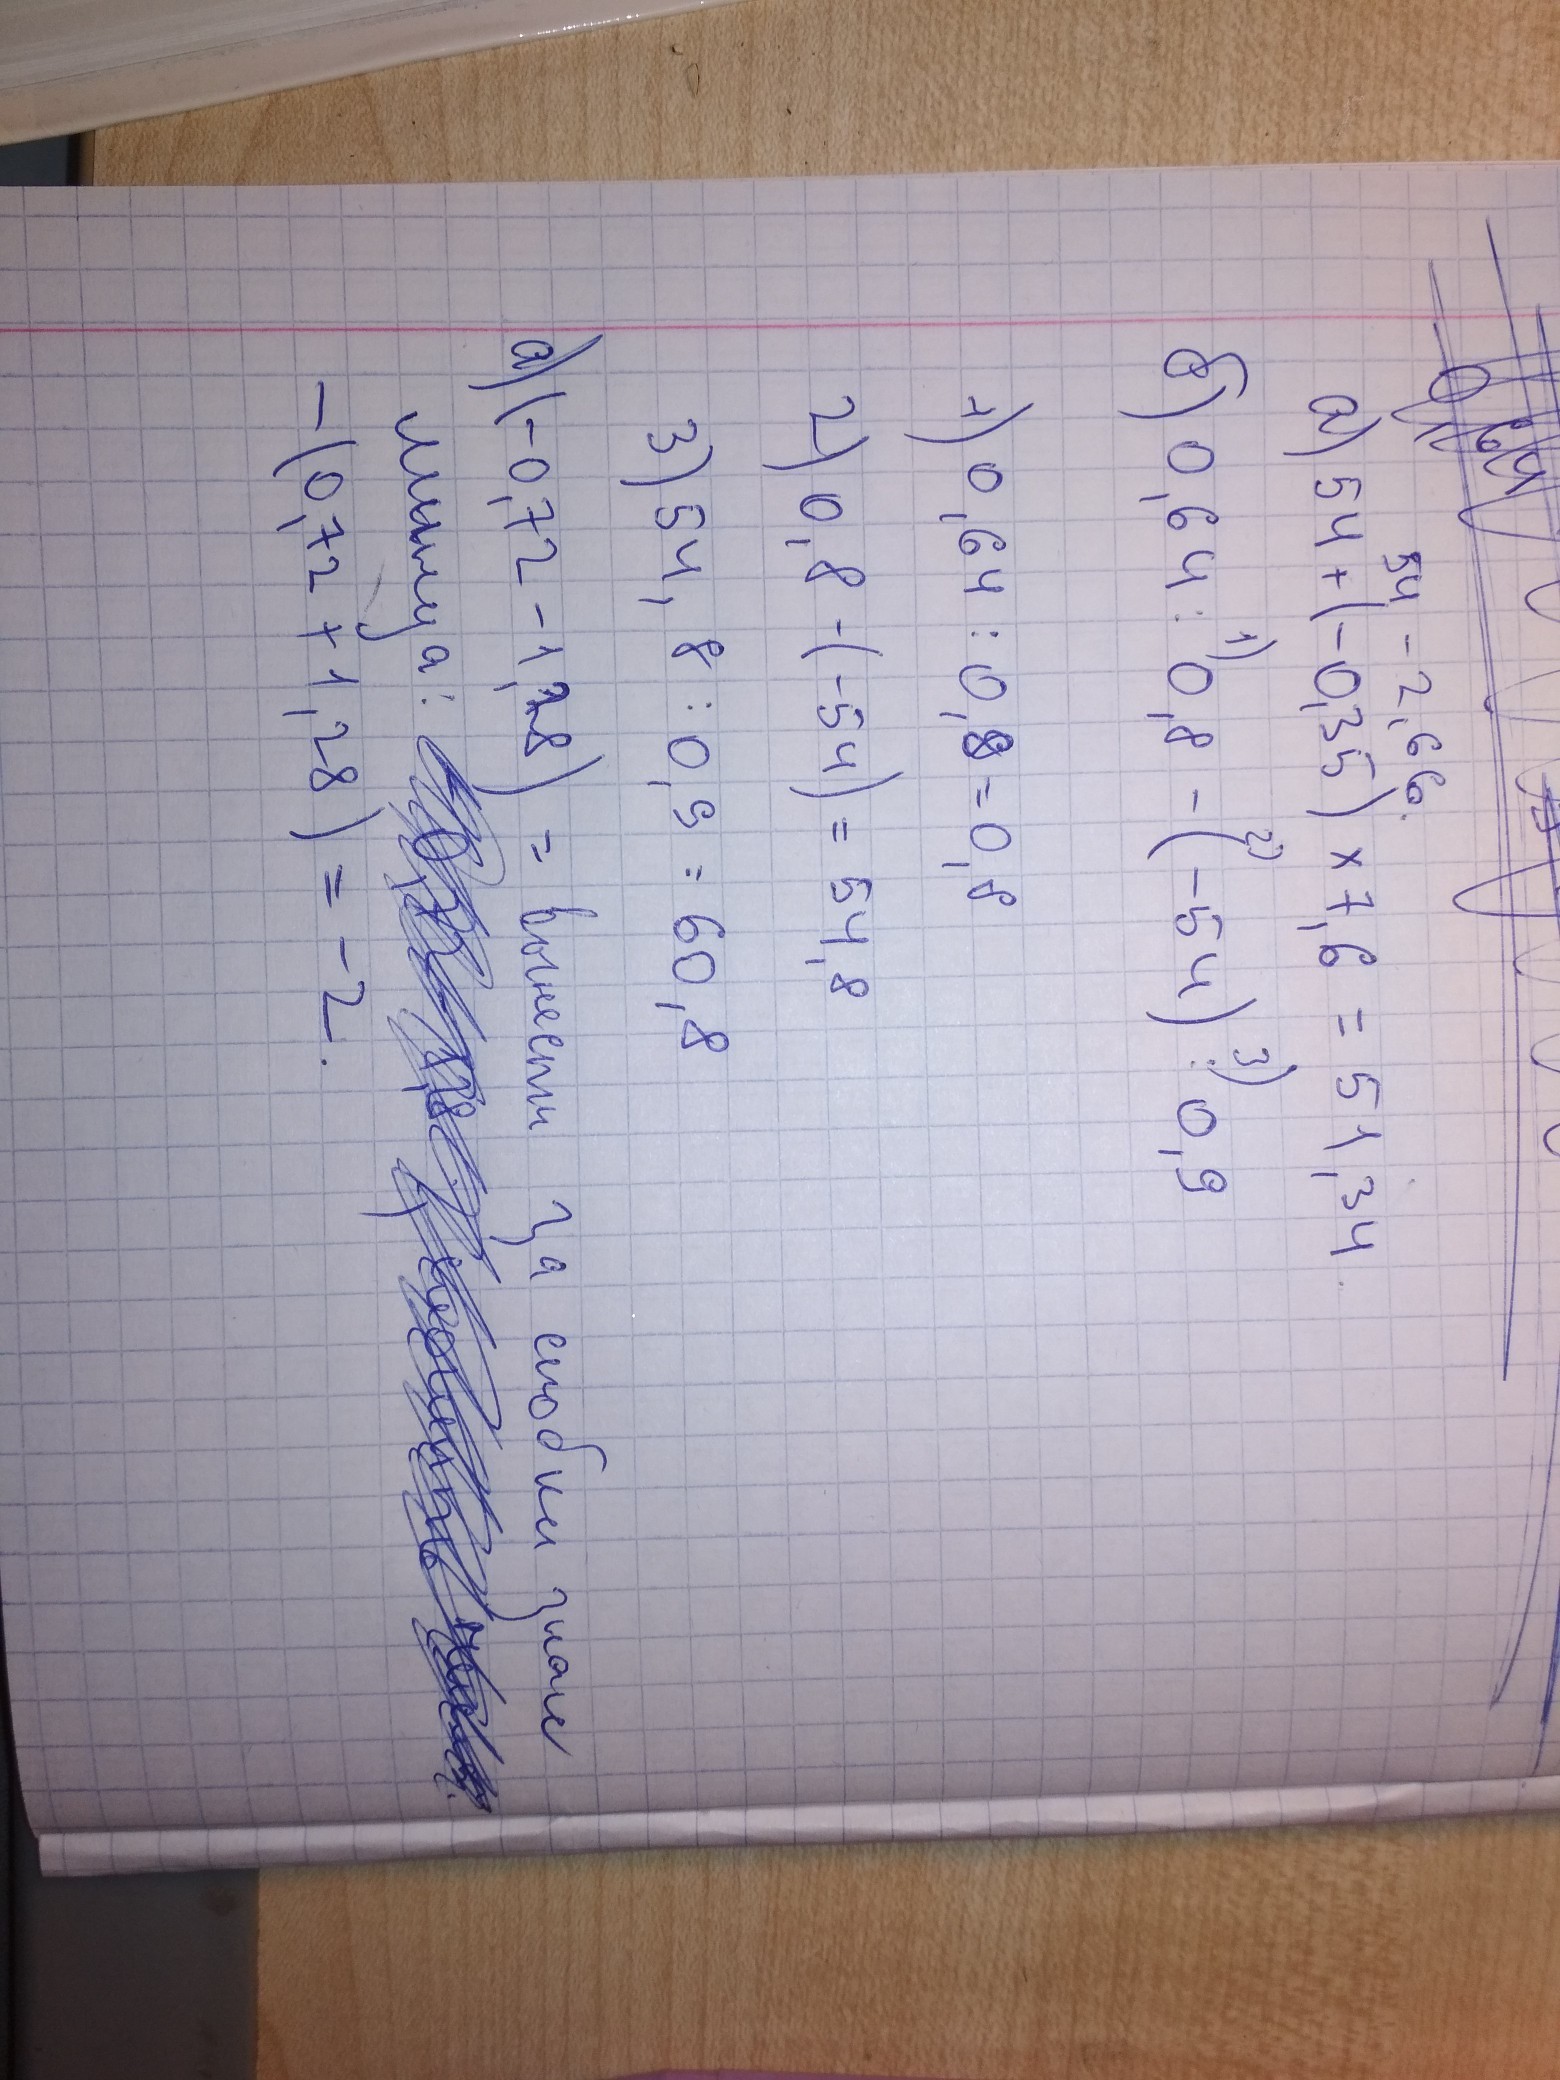 54 - 2,66.
а) 54 + (-0,35) × 7,6 = 51,34.
1) 2) 3)
б) 0,64 : 0,8 - (-54) : 0,9
1) 0,64 : 0,8 = 0,8
2) 0,8 - (-54) = 54,8
3) 54,8 : 0,9 = 60,8
а) (-0,72 - 1,28) = вынести за скобки знак
минуса:
- (0,72 + 1,28) = -2.